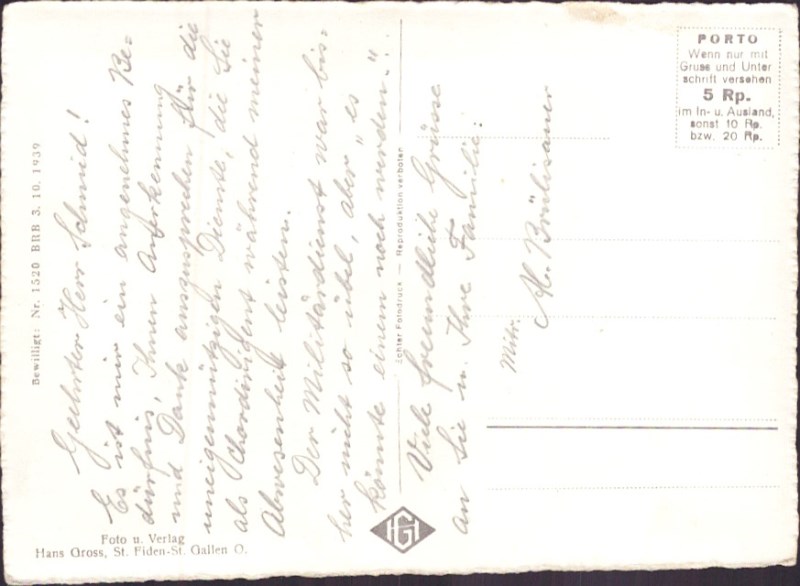 Geehrter Herr Schmid!
Es ist mir ein angenehmes Be=
dürfnis, Ihnen Anerkennung
und Dank auszusprechen für die
uneigennützigen Dienste, die Sie
als Chordirigent während meiner
Abwesenheit leisten.
Der Militärdienst war bis=
her nicht so übel, aber „es"
könnte einem noch werden"!
Viele freundliche Grüsse
an Sie u. Ihre Familie:
Mitr.
Al. Brülisauer
PORTO
Wenn nur mit
Gruss und Unter
schrift versehen
5 Rp.
im In- u. Ausland,
sonst 10 Rp.
bzw. 20 Rp.
Bewilligt: Nr. 1520 BRB 3. 10. 1939
Echter Fotodruck — Reproduktion verboten
HG
Foto u. Verlag
Hans Gross, St. Fiden-St. Gallen O.